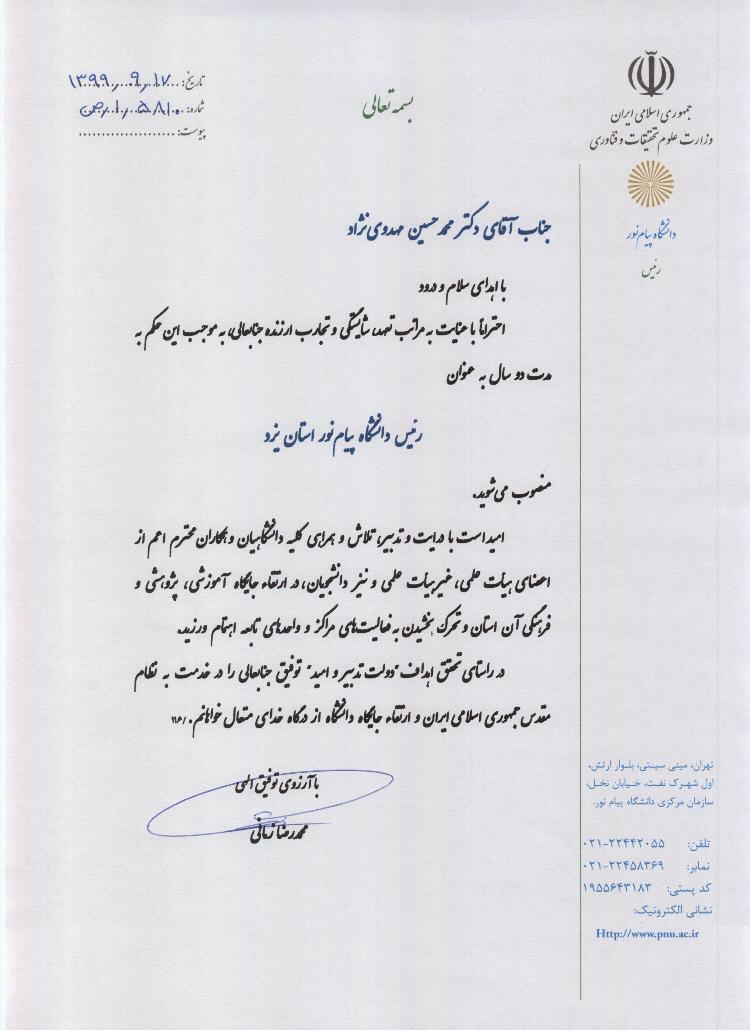 جمهوری اسلامی ایران
وزارت علوم تحقیقات و فناوری
دانشگاه پیام نور
رئیس
بسمه تعالی
تاریخ: ۱۳۹۹,۰۹,۱۷
شماره: ۵۸۱۰,۱,ص
پیوست:
جناب آقای دکتر محمدحسین مهدوی نژاد
با اهدای سلام و درود
احتراماً با عنایت به مراتب تعهد، شایستگی و تجارب ارزنده جنابعالی، به موجب این حکم به
مدت دو سال به عنوان
رئیس دانشگاه پیام نور استان یزد
منصوب می‌شوید.
امید است با درایت و تدبیر، تلاش و همراهی کلیه دانشگاهیان و همکاران محترم اعم از
اعضای هیات علمی، غیرهیات علمی و نیز دانشجویان، در ارتقاء جایگاه آموزشی، پژوهشی و
فرهنگی آن استان و تحرک بخشیدن به فعالیت‌های مراکز و واحدهای تابعه اهتمام ورزید.
در راستای تحقق اهداف "دولت تدبیر و امید" توفیق جنابعالی را در خدمت به نظام
مقدس جمهوری اسلامی ایران و ارتقاء جایگاه دانشگاه از درگاه خدای متعال خواهانم.
با آرزوی توفیق الهی
محمدرضا زمانی
تهران، مینی سیتی، بلوار ارتش،
اول شهرک نفت، خیابان نخل،
سازمان مرکزی دانشگاه پیام نور.
تلفن: ۰۲۱-۲۲۴۴۲۰۵۵
نمابر: ۰۲۱-۲۲۴۵۸۳۶۹
کد پستی: ۱۹۵۵۶۴۳۱۸۳
نشانی الکترونیک:
Http://www.pnu.ac.ir